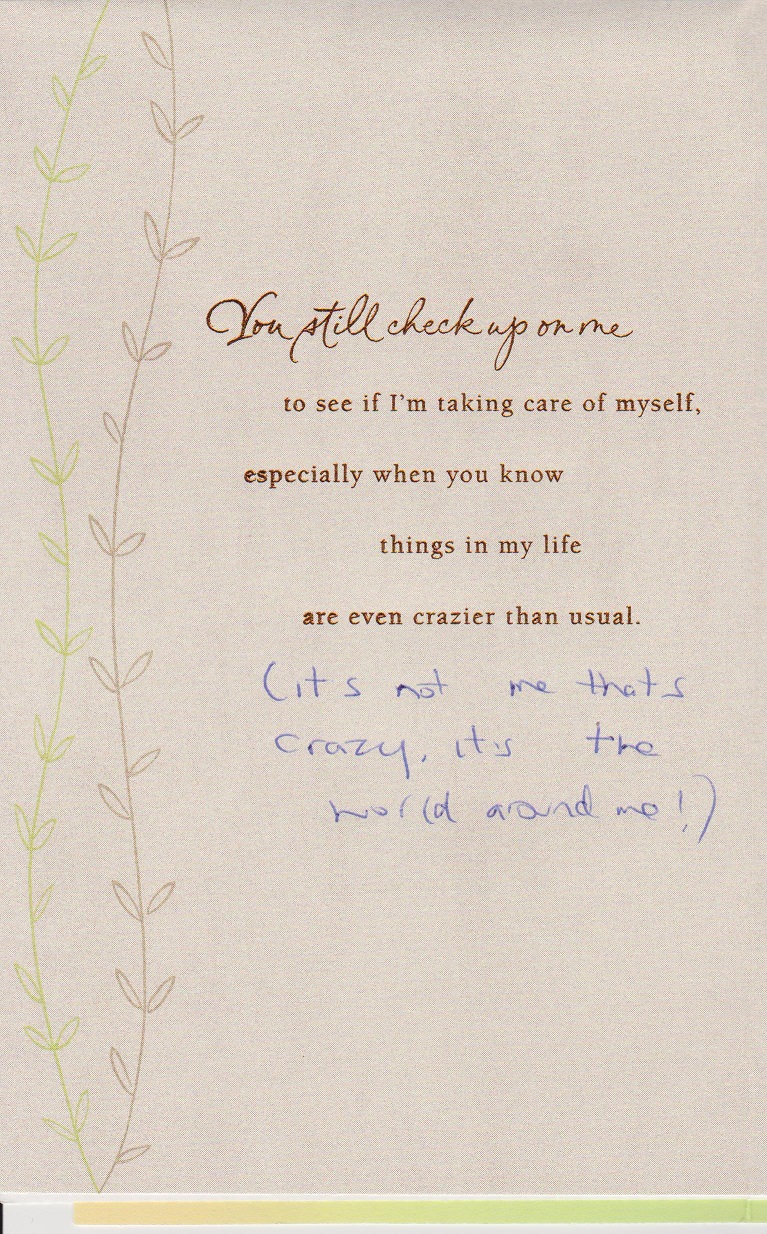 You still check up on me
to see if I'm taking care of myself,
especially when you know
things in my life
are even crazier than usual.
(it's not me thats
crazy, it's the
world around me!)